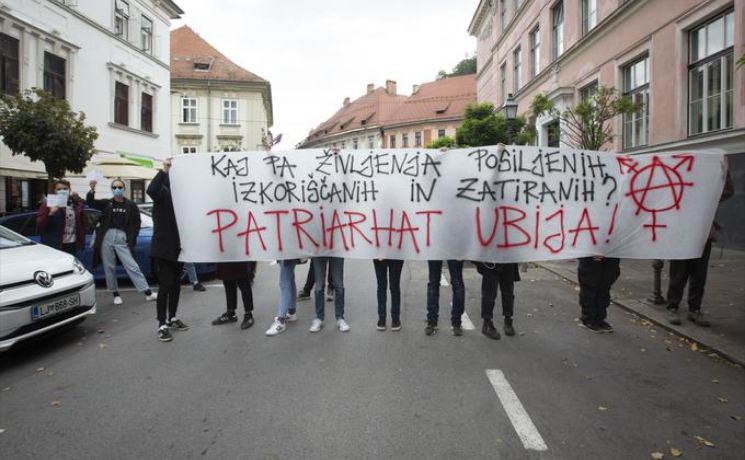 KAJ PA ŽIVLJENJA POSILJENIH,
IZKORIŠČANIH IN ZATIRANIH?
PATRIARHAT UBIJA!
LJ 868